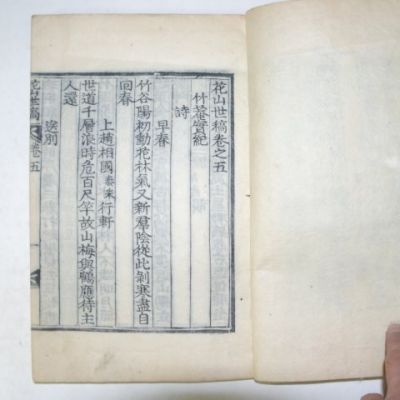 花山世稿卷之五
竹菴實紀
詩
早春
竹谷陽初動花林氣又新羣陰從此剝寒盡自
回春
上趙相國泰來行軒
世道千層浪時危百尺竿故山梅與鶴應待主
人還
送別
花山世稿 卷五